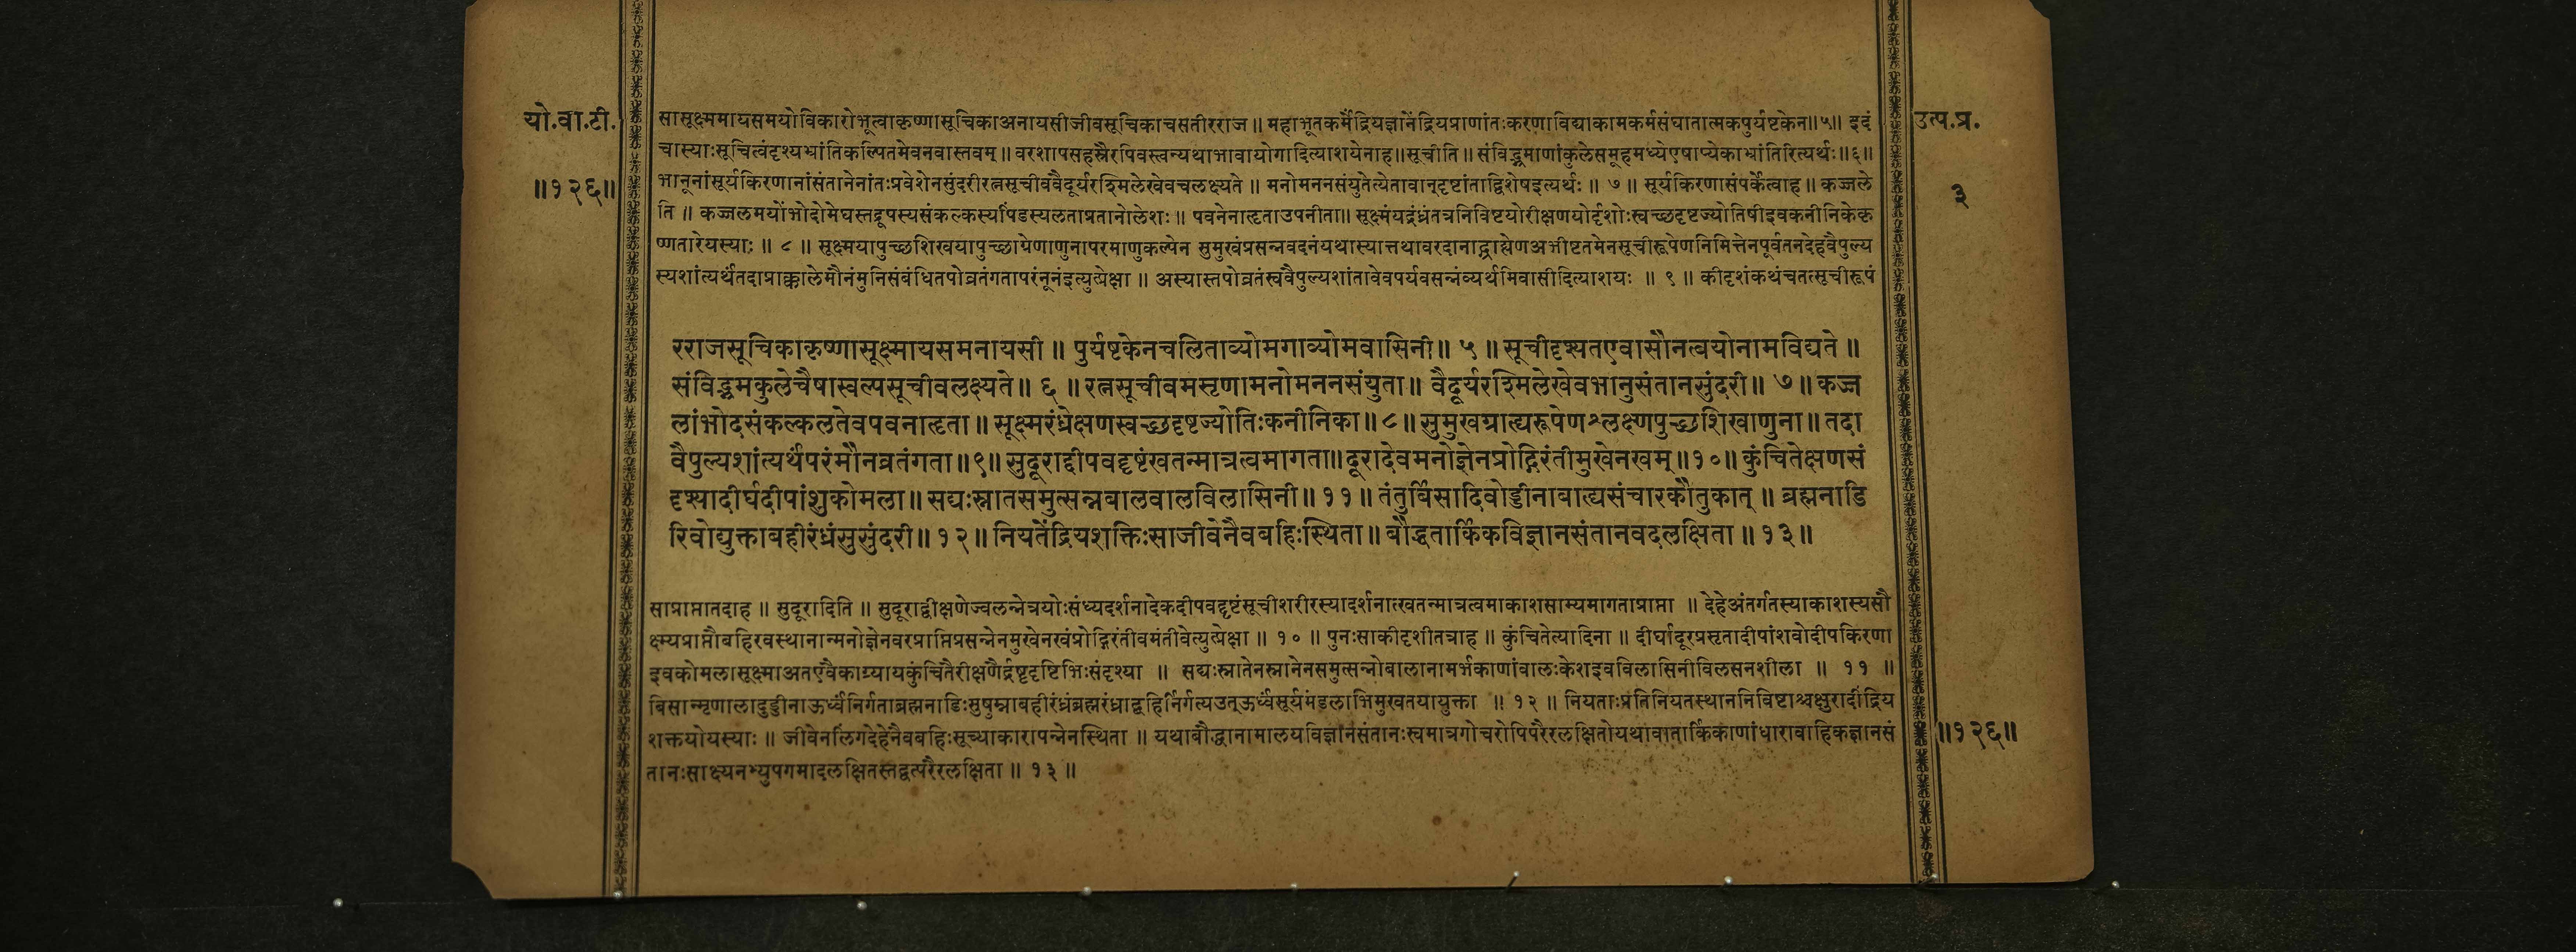 यो.वा.टी.
॥१२६॥
सासूक्ष्ममायसमयोविकारोभूत्वाकृष्णासूचिकाअनायसीजीवसूचिकाचसतीरराज ॥ महाभूतकर्मेंद्रियज्ञानेंद्रियप्राणांतःकरणाविद्याकामकर्मसंघातात्मकपुर्यष्टकेन॥५॥ इदं
चास्याःसूचित्वंदृश्यभ्रांतिकल्पितमेवनवास्तवम् ॥ वरशापसहस्रैरपिवस्त्वन्यथाभावायोगादित्याशयेनाह॥सूचीति ॥ संविद्भ्रमाणांकुलेसमूहमध्येएषाप्येकाभ्रांतिरित्यर्थः॥६॥
भानूनांसूर्यकिरणानांसंतानेनांतःप्रवेशेनसुंदरीरत्नसूचीववैदूर्यरश्मिलेखेवचलक्ष्यते ॥ मनोमननसंयुतेत्येतावान्दृष्टांताद्विशेषइत्यर्थः ॥ ७ ॥ सूर्यकिरणासंपर्केत्वाह ॥ कज्जले
ति ॥ कज्जलमयोंभोदोमेघस्तद्रूपस्यसंकल्कस्यपिंडस्यलताप्रतानोलेशः ॥ पवनेनात्दृताउपनीता॥ सूक्ष्मंयद्रंध्रंतत्रनिविष्टयोरीक्षणयोर्दृशोःस्वच्छदृष्टज्योतिषीइवकनीनिकेकृ
ष्णतारेयस्याः ॥ ८ ॥ सूक्ष्मयापुच्छशिखयापुच्छाग्रेणाणुनापरमाणुकल्पेन सुमुखंप्रसन्नवदनंयथास्यात्तथावरदानाद्ग्राह्येणअभीष्टतमेनसूचीरूपेणनिमित्तेनपूर्वतनदेहवैपुल्य
स्यशांत्यर्थंतदाप्राक्कालेमौनंमुनिसंबंधितपोव्रतंगतापरंनूनंइत्युत्प्रेक्षा ॥ अस्यास्तपोव्रतंस्ववैपुल्यशांतावेवपर्यवसन्नंव्यर्थमिवासीदित्याशयः ॥ ९ ॥ कीदृशंकथंचतत्सूचीरूपं
रराजसूचिकाकृष्णासूक्ष्मायसमनायसी ॥ पुर्यष्टकेनचलिताव्योमगाव्योमवासिनी॥ ५ ॥ सूचीदृश्यतएवासौनत्वयोनामविद्यते ॥
संविद्भ्रमकुलेचैषास्वल्पसूचीवलक्ष्यते॥ ६ ॥ रत्नसूचीवमसृणामनोमननसंयुता॥ वैदूर्यरश्मिलेखेवभानुसंतानसुंदरी॥ ७ ॥ कज्ज
लांभोदसंकल्कलतेवपवनात्दृता ॥ सूक्ष्मरंध्रेक्षणस्वच्छदृष्टज्योतिःकनीनिका॥८॥ सुमुखग्राह्यरूपेणश्लक्ष्णपुच्छशिखाणुना॥ तदा
वैपुल्यशांत्यर्थंपरंमौनव्रतंगता॥९॥ सुदूराद्दीपवद्दृष्टंखतन्मात्रत्वमागता॥दूरादेवमनोज्ञेनप्रोद्गिरंतीमुखेनखम्॥१०॥ कुंचितेक्षणसं
दृश्यादीर्घदीपांशुकोमला॥ सद्यःस्नातसमुत्सन्नबालवालविलासिनी॥ ११ ॥ तंतुर्बिसादिवोड्डीनाबाह्यसंचारकौतुकात् ॥ ब्रह्मनाडि
रिवोद्युक्ताबहीरंध्रंसुसुंदरी॥ १२ ॥ नियतेंद्रियशक्तिःसाजीवेनैवबहिःस्थिता॥ बौद्धतार्किकविज्ञानसंतानवदलक्षिता ॥ १३॥
साप्राप्तातदाह ॥ सुदूरादिति ॥ सुदूराद्वीक्षणेज्वलन्नेत्रयोःसंध्यदर्शनादेकदीपवद्दृष्टंसूचीशरीरस्यादर्शनात्खतन्मात्रत्वमाकाशसाम्यमागताप्राप्ता ॥ देहेअंतर्गतस्याकाशस्यसौ
क्ष्म्यप्राप्तौबहिरवस्थानान्मनोज्ञेनवरप्राप्तिप्रसन्नेनमुखेनखंप्रोद्गिरंतीवमंतीवेत्युत्प्रेक्षा ॥ १० ॥ पुनःसाकीदृशीतत्राह ॥ कुंचितेत्यादिना ॥ दीर्घादूरप्रसृतादीपांशवोदीपकिरणा
इवकोमलासूक्ष्माअतएवैकाग्र्यायकुंचितैरीक्षणैर्द्रष्टृदृष्टिभिःसंदृश्या ॥ सद्यःस्नातेनस्नानेनसमुत्सन्नोबालानामर्भकाणांवालःकेशइवविलासिनीविलसनशीला ॥ ११ ॥
बिसान्मृणालादुड्डीनाऊर्ध्वंनिर्गताब्रह्मनाडिःसुषुम्नाबहीरंध्रंब्रह्मरंध्राद्बहिर्निर्गत्यउत्ऊर्ध्वंसूर्यमंडलाभिमुखतयायुक्ता ॥ १२ ॥ नियताःप्रतिनियतस्थाननिविष्टाश्चक्षुरादींद्रिय
शक्तयोयस्याः ॥ जीवेनलिंगदेहेनैवबहिःसूच्याकारापन्नेनस्थिता ॥ यथाबौद्धानामालयविज्ञानसंतानःस्वमात्रगोचरोपिपरैरलक्षितोयथावातार्किकाणांधारावाहिकज्ञानसं
तानःसाक्ष्यनभ्युपगमादलक्षितस्तद्वत्परैरलक्षिता ॥ १३ ॥
उत्प.प्र.
३
॥१२६॥